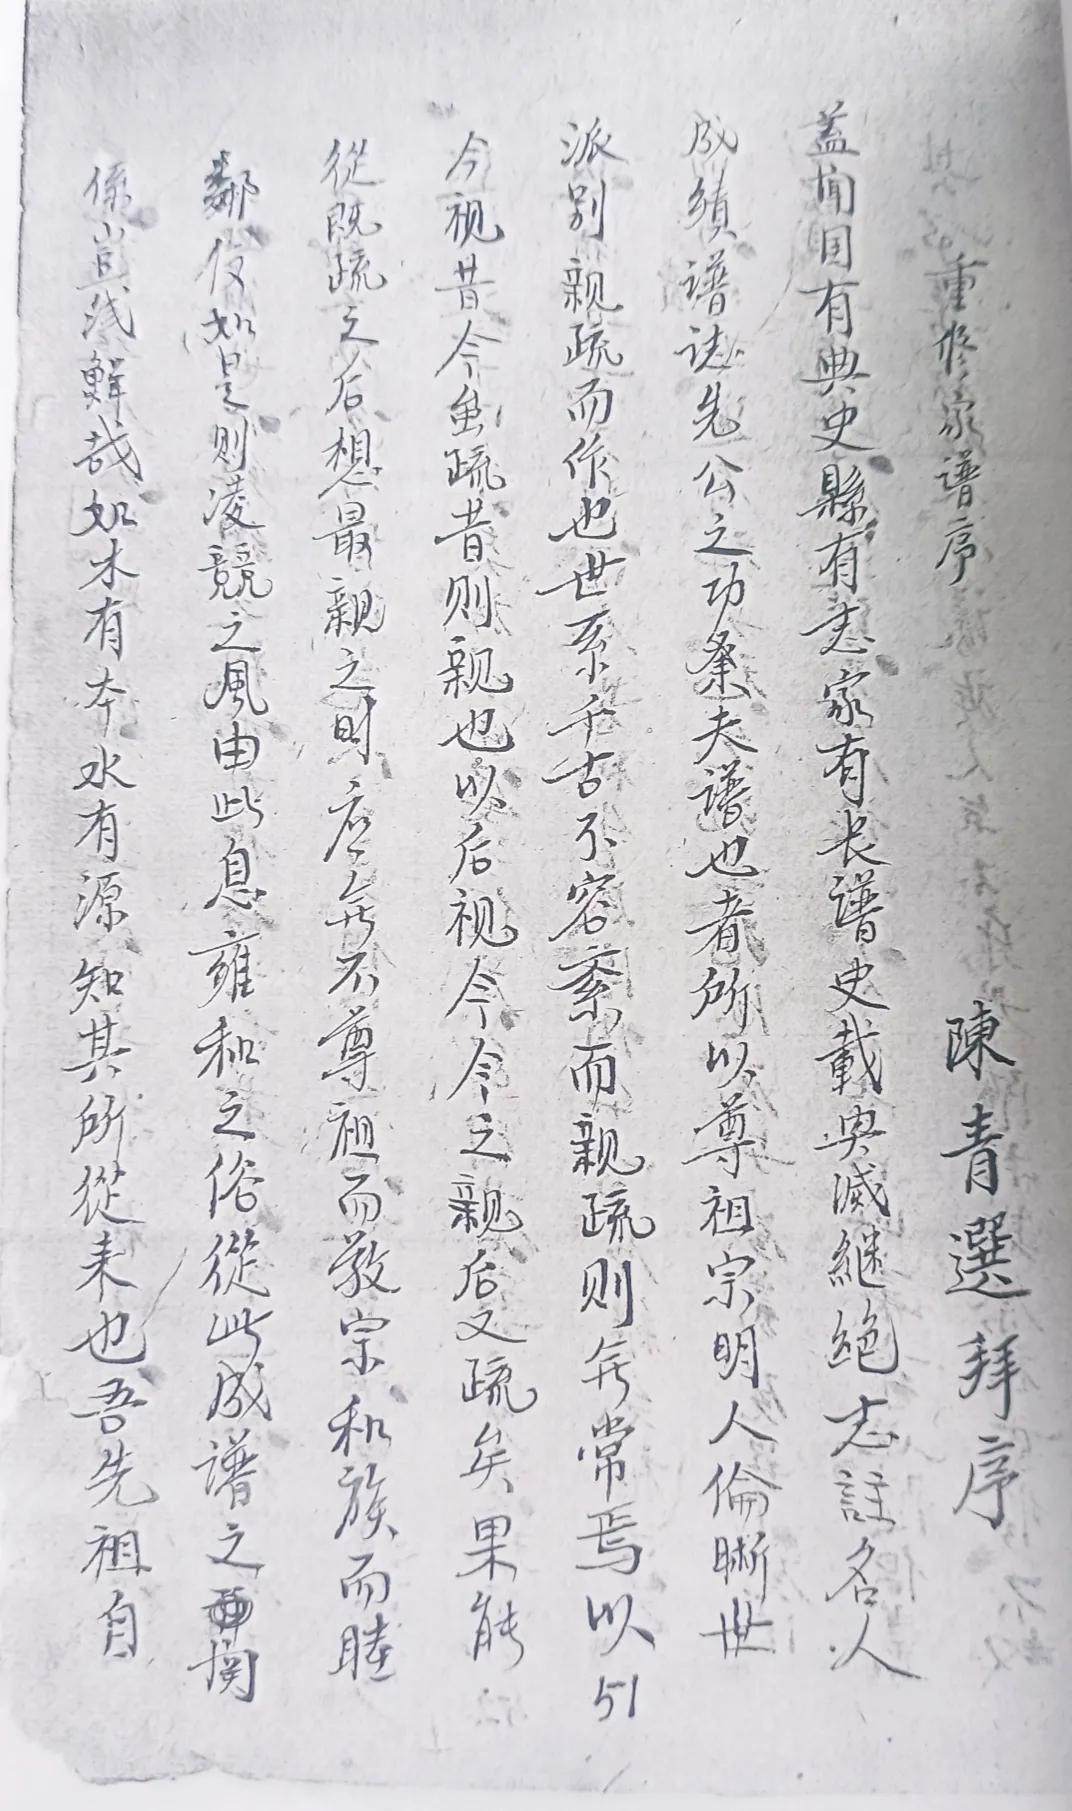 重修家谱序 陳青選拜序
盖闻国有典史縣有志家有长谱史載興滅継絕志註名人
成績谱誌先公之功桑夫谱也者所以尊祖宗明人倫晰世
派别親疏而作也世系千古不容紊而親疏则無常焉以 51
今视昔今虽疏昔则親也以后视今今之親后又疏矣果能
從既疏之后想最親之时应無不尊祖而敬宗和族而睦
鄰仅如是则凌競之风由此息雍和之俗從此成谱之関
係豈浅鲜哉如木有本水有源知其所從来也吾先祖自